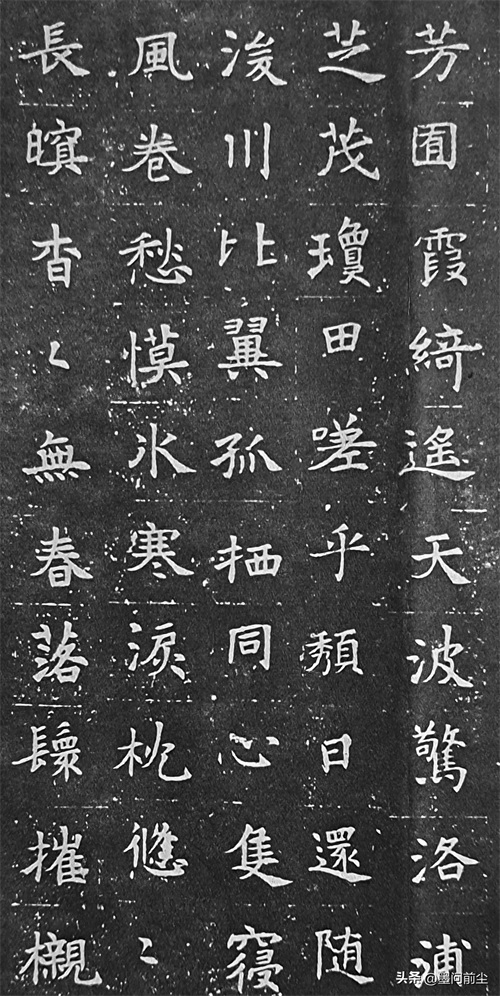 芳囿霞綺遙天波驚洛浦
芝茂瓊田嗟乎頹日還随
浚川比翼孤栖同心隻寢
風卷愁慔水寒淚枕悠〻
長暝杳〻無春落摧櫬
头条 @墨问前尘